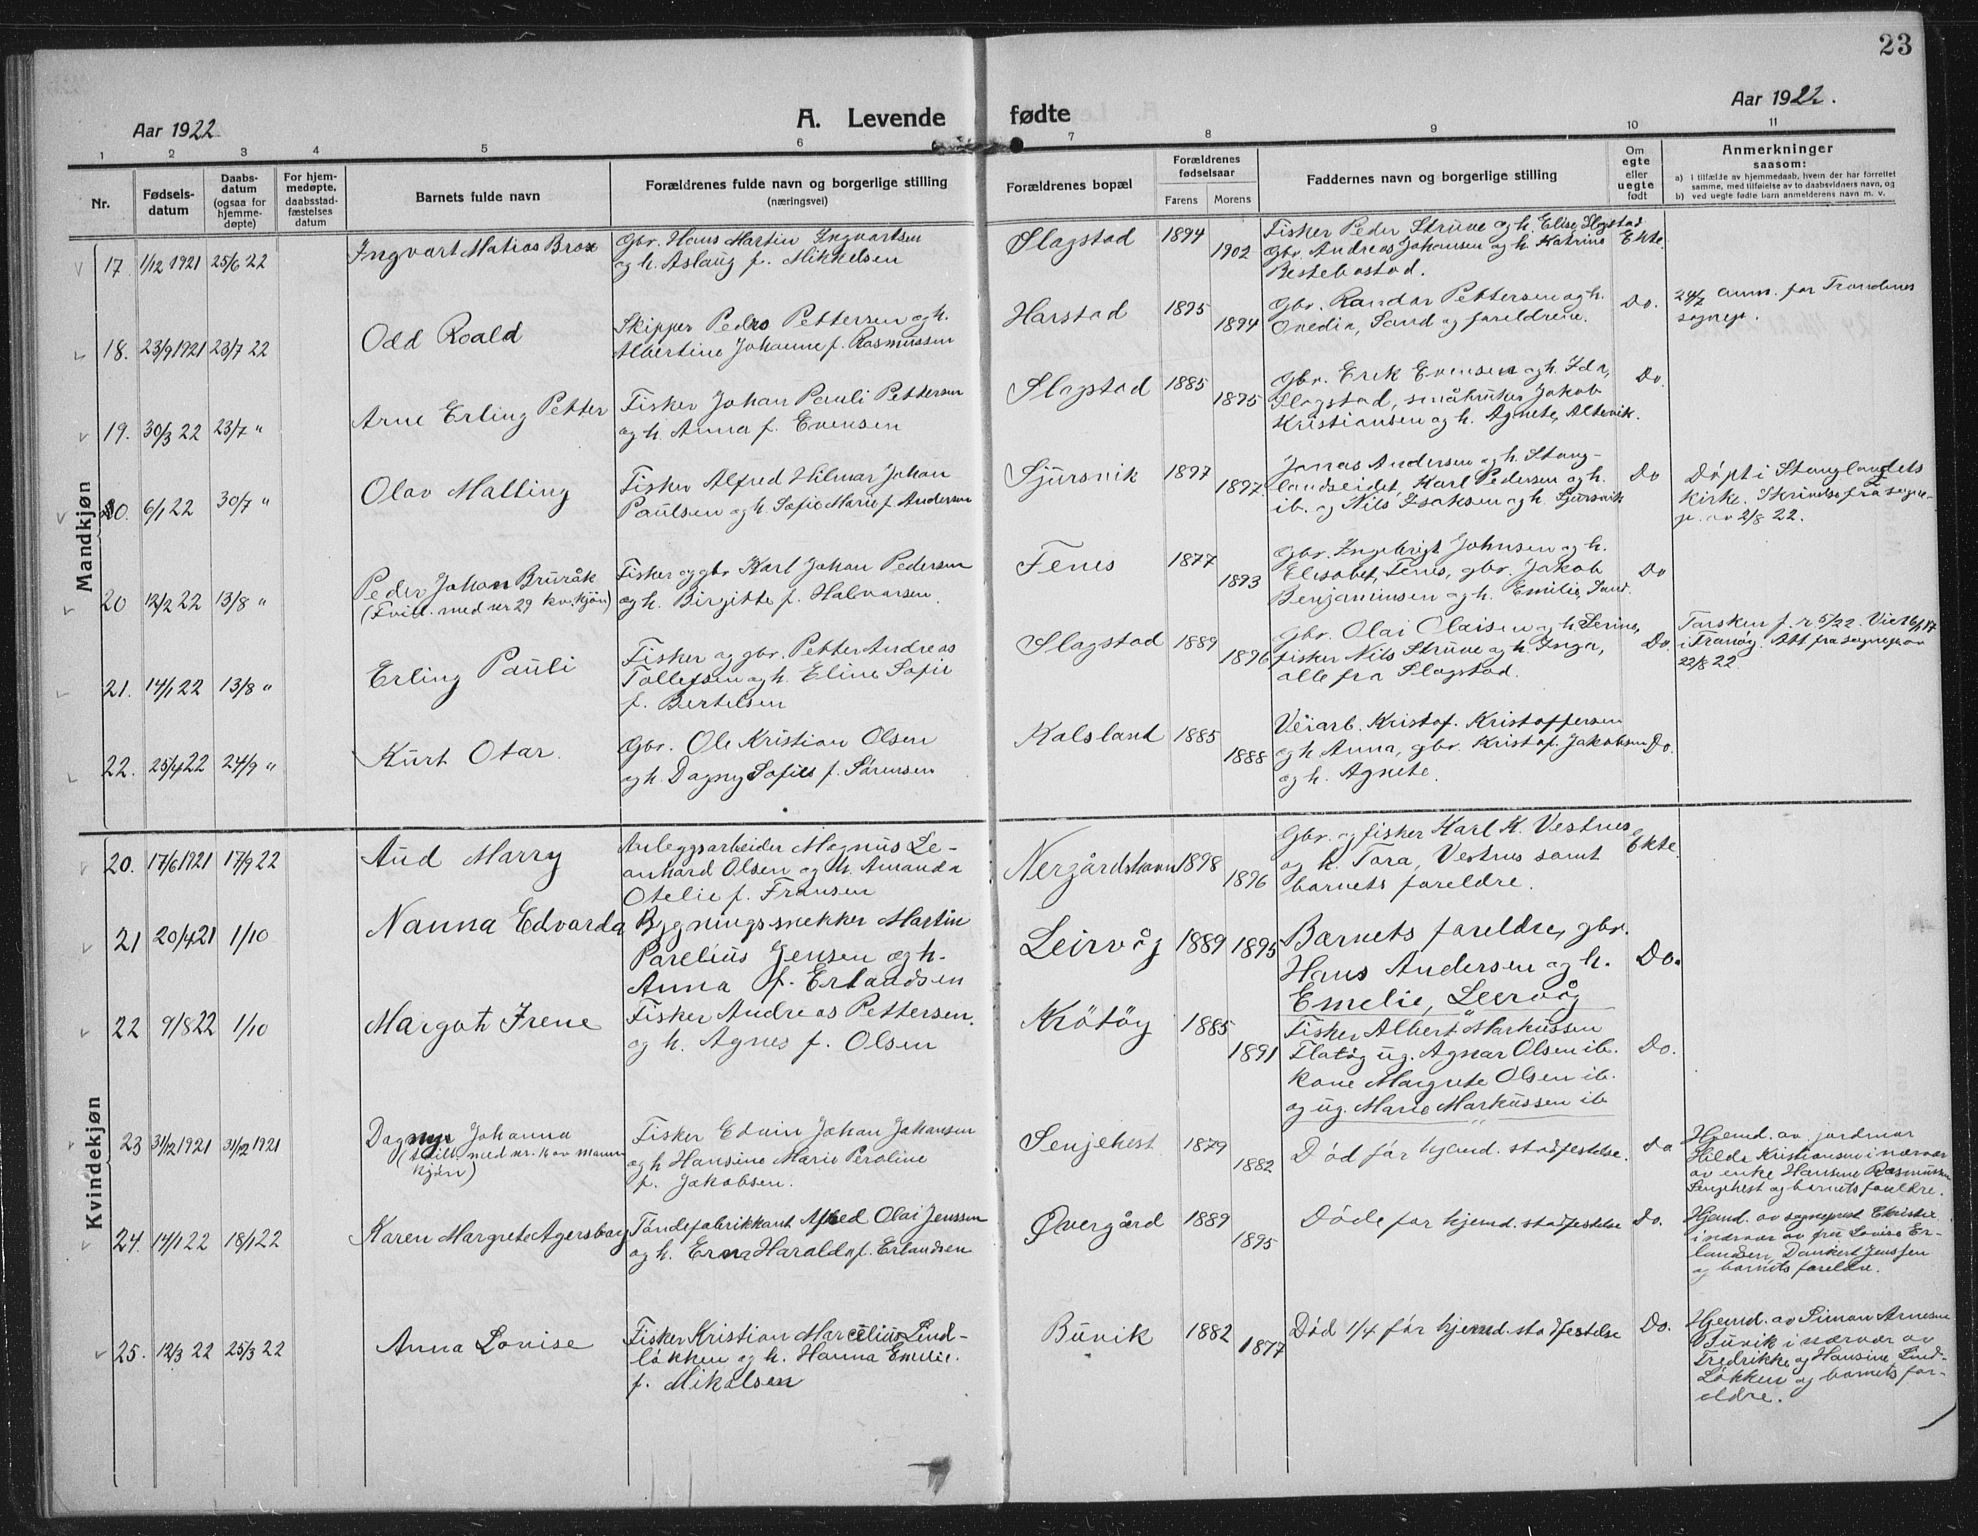 23
Aar 1922.
A. Levende fødte
Aar 1922.
1 2 3 4 5 6 7 8 9 10 11
Nr.
Fødsels-
datum
Daabs-
datum
(ogsaa for
hjemme-
døpte)
For hjem-
medøpte,
daabsstad-
fæstelses
datum
Barnets fulde navn
Forældrenes fulde navn og borgerlige stilling
(næringsvei)
Forældrenes bopæl
Forældrenes
fødselsaar
Farens Morens
Faddernes navn og borgerlige stilling
Om
egte
eller
uegte
født
Anmerkninger
saasom:
a) i tilfælde av hjemmedaab, hvem der har forrettet
samme, med tilføielse av to daabsvidners navn, og
b) ved uegte fødte barn anmelderens navn m. v.
Mandkjøn
17. 1/12 1921 25/6 22
Ingvart Matias Brox
Gbr. Hans Martin Ingvartsen
og h. Aslaug f. Mikkelsen
Slagstad 1894 1902
Fisker Peder Strüve og h. Elise, Slagstad
Gbr. Andreas Johansen og h. Katrine
Bestebostad.
Ekte.
18. 23/9 1921 23/7 22
Odd Roald
Skipper Pedro Pettersen og h.
Albertine Johanne f. Rasmussen
Harstad 1895 1894
Gbr. Randor Pettersen og h.
Ovedia, Sand og foreldrene.
Do.
24/7 anm. for Trondenes
sognep.
19. 30/3 22 23/7 "
Arne Erling Petter
Fisker Johan Pauli Pettersen
og h. Anna f. Evensen
Slagstad 1885 1895
Gbr. Erik Evensen og h. Ida,
Slagstad, småbruker Jakob
Kristiansen og h. Agnete, Altevik.
Do.
20. 6/1 22 30/7 "
Olav Malling
Fisker Alfred Hilmar Johan
Paulsen og h. Sofie Marie f. Andersen
Sjursvik 1897 1897.
Jonas Andersen og h. Stang-
landseidet, Karl Pedersen og h.
ib. og Nils Isaksen og h. Sjursvik
Do
Döpt i Stanglandets
kirke. Skrivelse fra sogne-
p. av 2/8 22.
20 12/2 22 13/8 "
Peder Johan Bruråk
(Tvill. med nr 29 kv.kjön)
Fisker og gbr Karl Johan Pedersen
og h. Birgitte f. Halvorsen.
Fenes 1877 1893
Gbr. Ingebrigt Johnsen og h.
Elisabet, Fenes, gbr. Jakob
Benjaminsen og h. Emilie, Sand.
Do
21. 14/1 22 13/8 "
Erling Pauli
Fisker og gbr. Petter Andreas
Tollefsen og h. Eline Sofie
f. Bertelsen
Slagstad 1889 1896
Gbr. Olai Olaisen og h. Serine,
fisker Nils Strüve og h. Inga,
alle fra Slagstad.
Do.
i Tranöy. Att. fra sognep. av
22/8 22.
22. 25/4 22 24/9 "
Kurt Otar.
Gbr. Ole Kristian Olsen
og h. Dagny Sofie f. Sörensen
Kalsland 1885 1888
Veiarb. Kristof. Kristoffersen
og h Anna, gbr. Kristof. Jakobsen
og h. Agnete.
Do.
Kvindekjøn
20. 17/6 1921 17/9 22
Aud Marry
Anleggsarbeider Magnus Le-
onhard Olsen og h. Amanda
Otelie f. Fransen
Nergårdshavn 1898 1896
Gbr. og fisker Karl K. Vestnes
og h. Tora, Vestnes samt
barnets foreldre.
Ekte.
21 20/4 21 1/10
Nanna Edvarda
Bygningssnekker Martin
Parelius Jensen og h.
Anna f. Erlandsen
Leirvåg 1889 1895
Barnets foreldre, gbr.
Hans Andersen og h.
Emelie, Leirvåg
Do.
22 9/8 22 1/10
Margot Irene
Fisker Andreas Pettersen.
og h. Agnes f. Olsen
Krötöy 1885 1891
Fisker Albert Markussen
Flatöy ug. Agnar Olsen ib.
kone Margrete Olsen ib.
og ug. Marie Markussen ib
Do.
23 31/12 1921 31/12 1921
Dagny Johanna
(tvill. med nr. 16 av mann
kjön)
Fisker Edvin Johan Johansen
og h Hansine Marie Peroline
f. Jakobsen.
Senjehest 1879 1882
Död för hjemd. stadfestelse.
Do
Hjemd. av jordmor
Hilda Kristiansen i nærvær
av enke Hansine Rasmussen
Senjehest og barnets foreldre.
24. 14/1 22 18/1 22
Karen Margrete Agersborg
Töndefabrikkant Alfred Olai Jenssen
og h. Erna Haralda f. Erlandsen
Övergård 1889 1895
Döde för hjemd. stadfestelse
Do.
Hjemd. av sogneprest
i nærvær av fru Lovise Er-
landsen, Dankert Jenssen
og barnets foreldre.
25. 12/3 22 25/3 22
Anna Lovise
Fisker Kristian Marcelius Lind-
løkken og h. Hanna Emelie.
f. Mikalsen
Buvik 1882 1877
Död 1/4 för hjemd. stadfestelse
Do.
Hjemd. av Simon Arnesen
Buvik i nærvær av
Fredrikke og Hansine Lind-
Løkken og barnets for-
eldre.